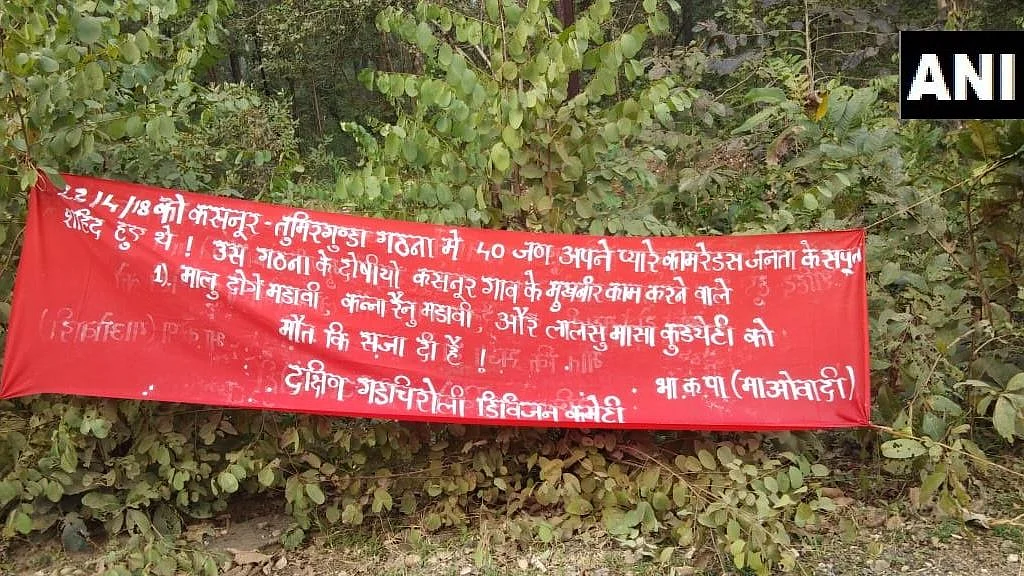 ANI
22/4/18 को कसनूर - तुमिरगुण्डा गठना मे 40 जण अपने प्यारे कामरेडस जनता के सपूत
शहिद हुए थे ! उस गठना के दोषीयो कसनूर गाव के मुखबीर काम करने वाले
1). मालु दोगे मडावी, कन्ना रैनु मडावी, और लालसु मासा कुडयेटी को
मौत कि सजा दी है !
दक्षिण गडचिरोली डिविजन कमेटी
भा.क.पा (माओवादी)